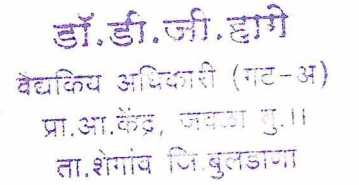 डॉ.डी.जी.हागे
वैद्यकिय अधिकारी (गट-अ)
प्रा.आ.केंद्र, जवळा बु.॥
ता.शेगांव जि.बुलडाणा